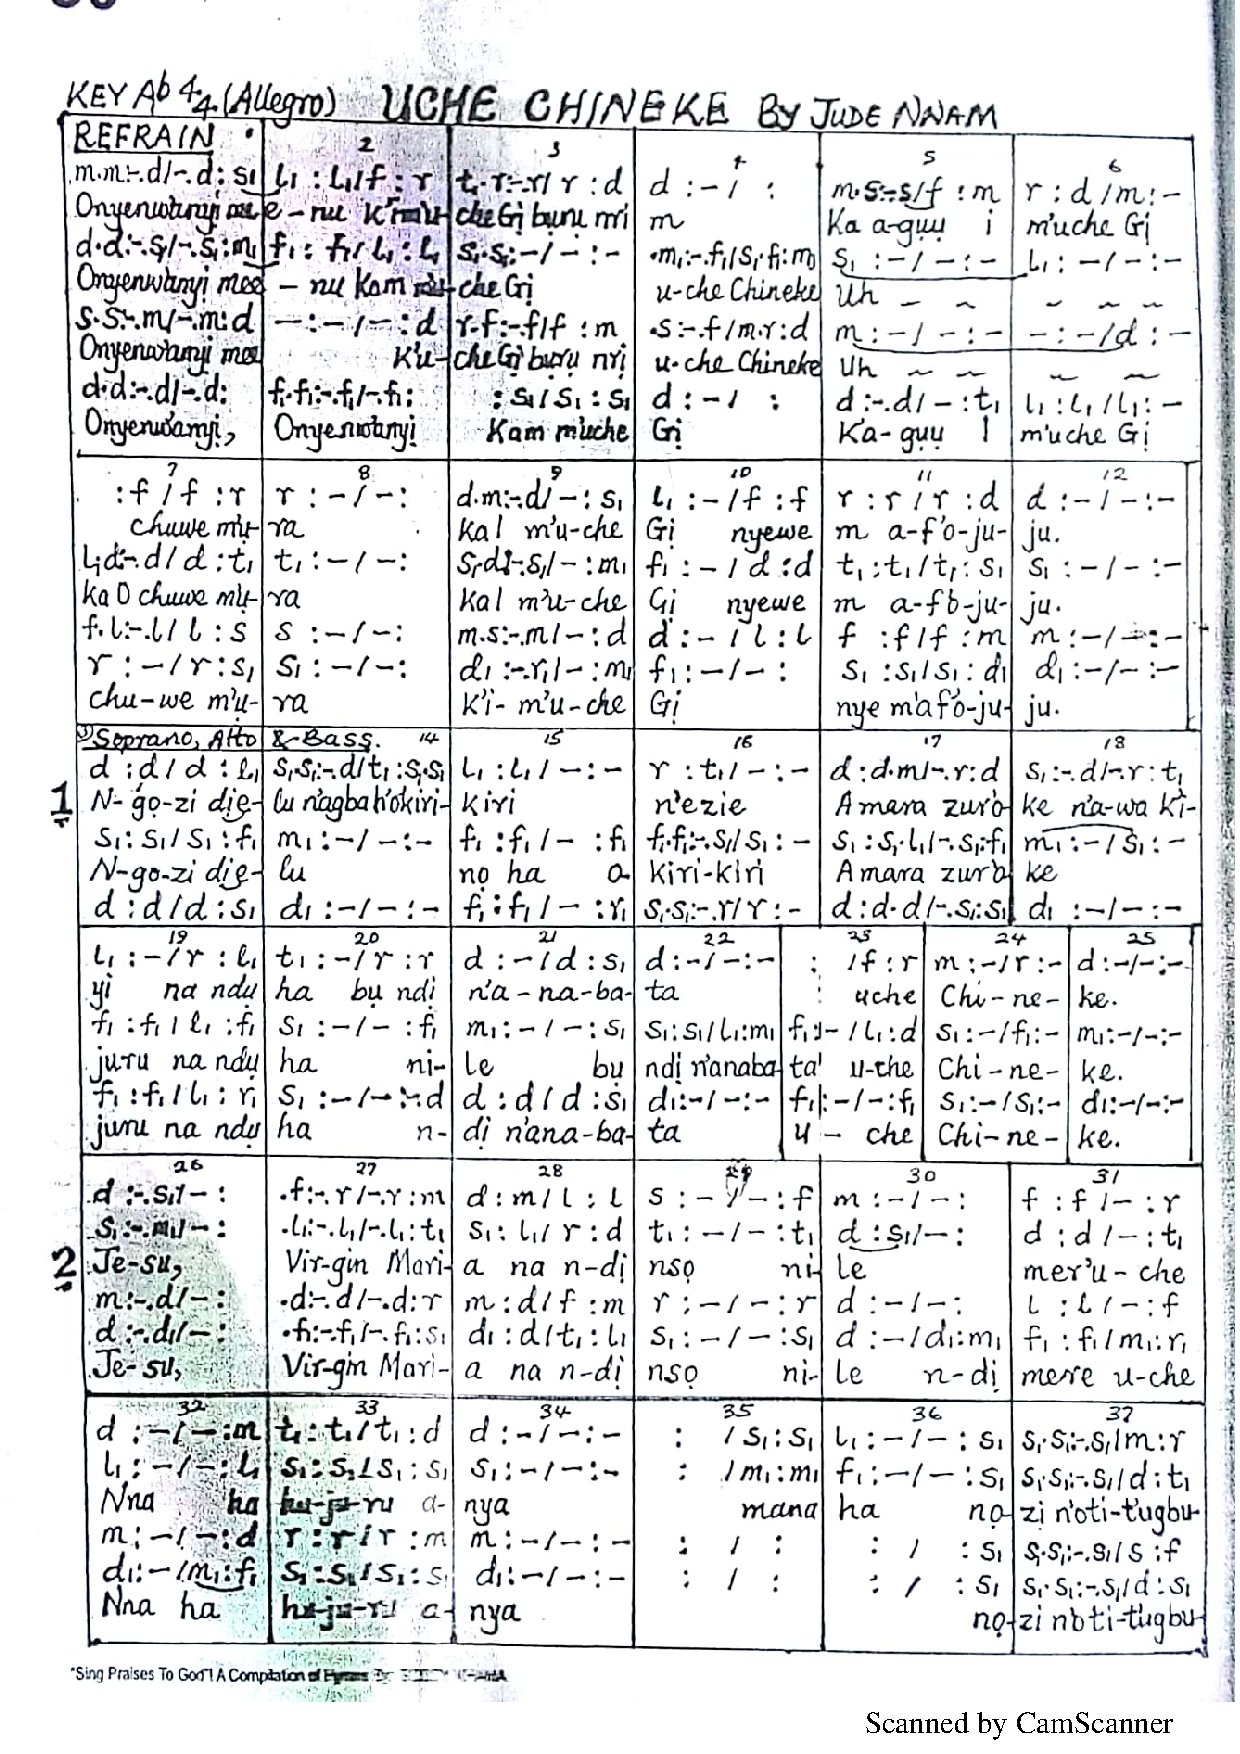 KEY Ab 4/4 (Allegro) UCHE CHINEKE BY JUDE NNAM
REFRAIN 2 3 4 5 6
m.m:-.d/-.d:s₁ l₁ :l₁/f :r t₁.r:-.r/ r :d d :-/ : m.s:-.s/f :m r :d /m:-
Onyenwanyi mee e-nu K'mu-che Gị bụrụ nri m Ka a-gụụ i m'uche Gị
d.d:-.s₁/-.s₁:m₁ f₁: f₁/ l₁: l₁ s₁.s₁:-/-:- .m₁:-.f₁/s₁.f₁:m₁ s₁ :-/-:- l₁ :-/-:-
Onyenwanyi mee - nu Kam mu-che Gị u-che Chineke Uh
s.s:-.m/-.m:d -:-/-:d r.f:-.f/f :m .s:-.f/m.r:d m:-/ -:- -:-/d :-
Onyenwanyi mee K'u-che Gị bụrụ nrị u-che Chineke Uh
d.d:-.d/-.d: f₁.f₁:-.f₁/-.f₁: :s₁/s₁ :s₁ d :-/ : d :-.d/ - :t₁ l₁ :l₁/l₁:-
Onyenwanyi, Onyenwanyi Kam m'uche Gị Ka-gụụ I m'uche Gị
7 8 9 10 11 12
:f / f :r r :-/-: d.m:-.d/-:s₁ l₁ :-/f :f r :r/r :d d :-/-:-
chuwe mụ-ra Ka I m'u-che Gị nyewe m a-f'o-ju-ju.
l₁.d:-.d/ d :t₁ t₁ :-/-: s₁.d:-.s₁/-:m₁ f₁ :-/d :d t₁ :t₁/t₁:s₁ s₁ :-/-:-
ka O chuwe mụ-ra Ka I m'u-che Gị nyewe m a-fo-ju-ju.
f.l:-.l/ l :s s :-/-: m.s:-.m/-:d d :-/l :l f :f/f :m m :-/-:-
r :-/r:s₁ s₁ :-/-: d₁ :-.r₁/-:m₁ f₁ :-/-: s₁ :s₁/s₁:d₁ d₁ :-/-:-
chu-we m'ụ-ra K'i-m'u-che Gị nye m'a fo-ju-ju.
① Soprano, Alto & Bass. 14 15 16 17 18
d :d/ d :l₁ s₁.s₁:-.d/t₁ :s₁.s₁ l₁ :l₁/-:- r :t₁/-:- d :d.m/-.r:d s₁:-.d/-.r:t₁
1 N-gọ-zi dịe-lu n'agba h'okiri-kiri n'ezie Amara zuro ke n'a-wa ki-
s₁:s₁/s₁:f₁ m₁:-/-:- f₁ :f₁/- :f₁ f₁.f₁:-.s₁/s₁:- s₁ :s₁.l₁/-.s₁:f₁ m₁:-/s₁:-
N-go-zi dịe-lu nọ ha o-kiri-kiri Amara zuro ke
d :d/d :s₁ d₁ :-/-:- f₁ :f₁/- :r₁ s₁.s₁:-.r/r :- d:d.d/-.s₁:s₁ d₁ :-/-:-
19 20 21 22 23 24 25
l₁ :-/r :l₁ t₁ :-/r :r d :-/d :s₁ d:-/-:- : /f :r m:-/r :- d:-/-:-
yi na ndụ ha bụ ndị n'a-na-ba-ta uche Chi-ne-ke.
f₁ :f₁/l₁ :f₁ s₁ :-/- :f₁ m₁:-/-:s₁ s₁:s₁/l₁:m₁ f₁:-/l₁:d s₁:-/f₁:- m₁:-/-:-
juru na ndụ ha ni-le bu ndị n'anaba ta' u-che Chi-ne-ke.
f₁ :f₁/l₁ :r₁ s₁ :-/-:-d d :d/d :s₁ d₁:-/-:- f₁:-/-:f₁ s₁:-/s₁:- d₁:-/-:-
juru na ndụ ha n-dị n'ana-ba-ta u-che Chi-ne-ke.
26 27 28 29 30 31
d :-.s₁/-: .f:-.r/-.r:m d :m/l :l s :-/-:f m :-/-: f :f/-:r
s₁:-.m₁/-: .l₁:-.l₁/-.l₁:t₁ s₁:l₁/r :d t₁ :-/-:t₁ d :s₁/-: d :d/-:t₁
2 Je-su, Vir-gin Mari-a na n-dị nsọ ni-le mer'u-che
m:-.d/-: .d:-.d/-.d:r m :d/f :m r :-/-:r d :-/-: l :l/-:f
d :-.d₁/-: .f₁:-.f₁/-.f₁:s₁ d₁ :d/t₁:l₁ s₁ :-/-:s₁ d :-/d₁:m₁ f₁ :f₁/m₁:r₁
Je-su, Vir-gin Mari-a na n-dị nsọ ni-le n-dị mere u-che
32 33 34 35 36 37
d :-/-:m t₁:t₁/t₁:d d :-/-:- : /s₁:s₁ l₁ :-/-:s₁ s₁.s₁:-.s₁/m:r
l₁ :-/-:l₁ s₁:s₁/s₁:s₁ s₁:-/-:- : /m₁:m₁ f₁:-/-:s₁ s₁.s₁:-.s₁/d:t₁
Nna ha ha-ju-ru a-nya mana ha nọ-zi n'oti-t'ugbu-
m:-/-:d r :r/r :m m :-/-:- : / : : / :s₁ s₁.s₁:-.s₁/s :f
d₁:-/m₁:f₁ s₁:s₁/s₁:s₁ d₁:-/-:- : / : : / :s₁ s₁.s₁:-.s₁/d:s₁
Nna ha ha-ju-ru a-nya nọ-zi n'oti-t'ugbu-
"Sing Praises To God"! A Compilation of Hymns By:
Scanned by CamScanner